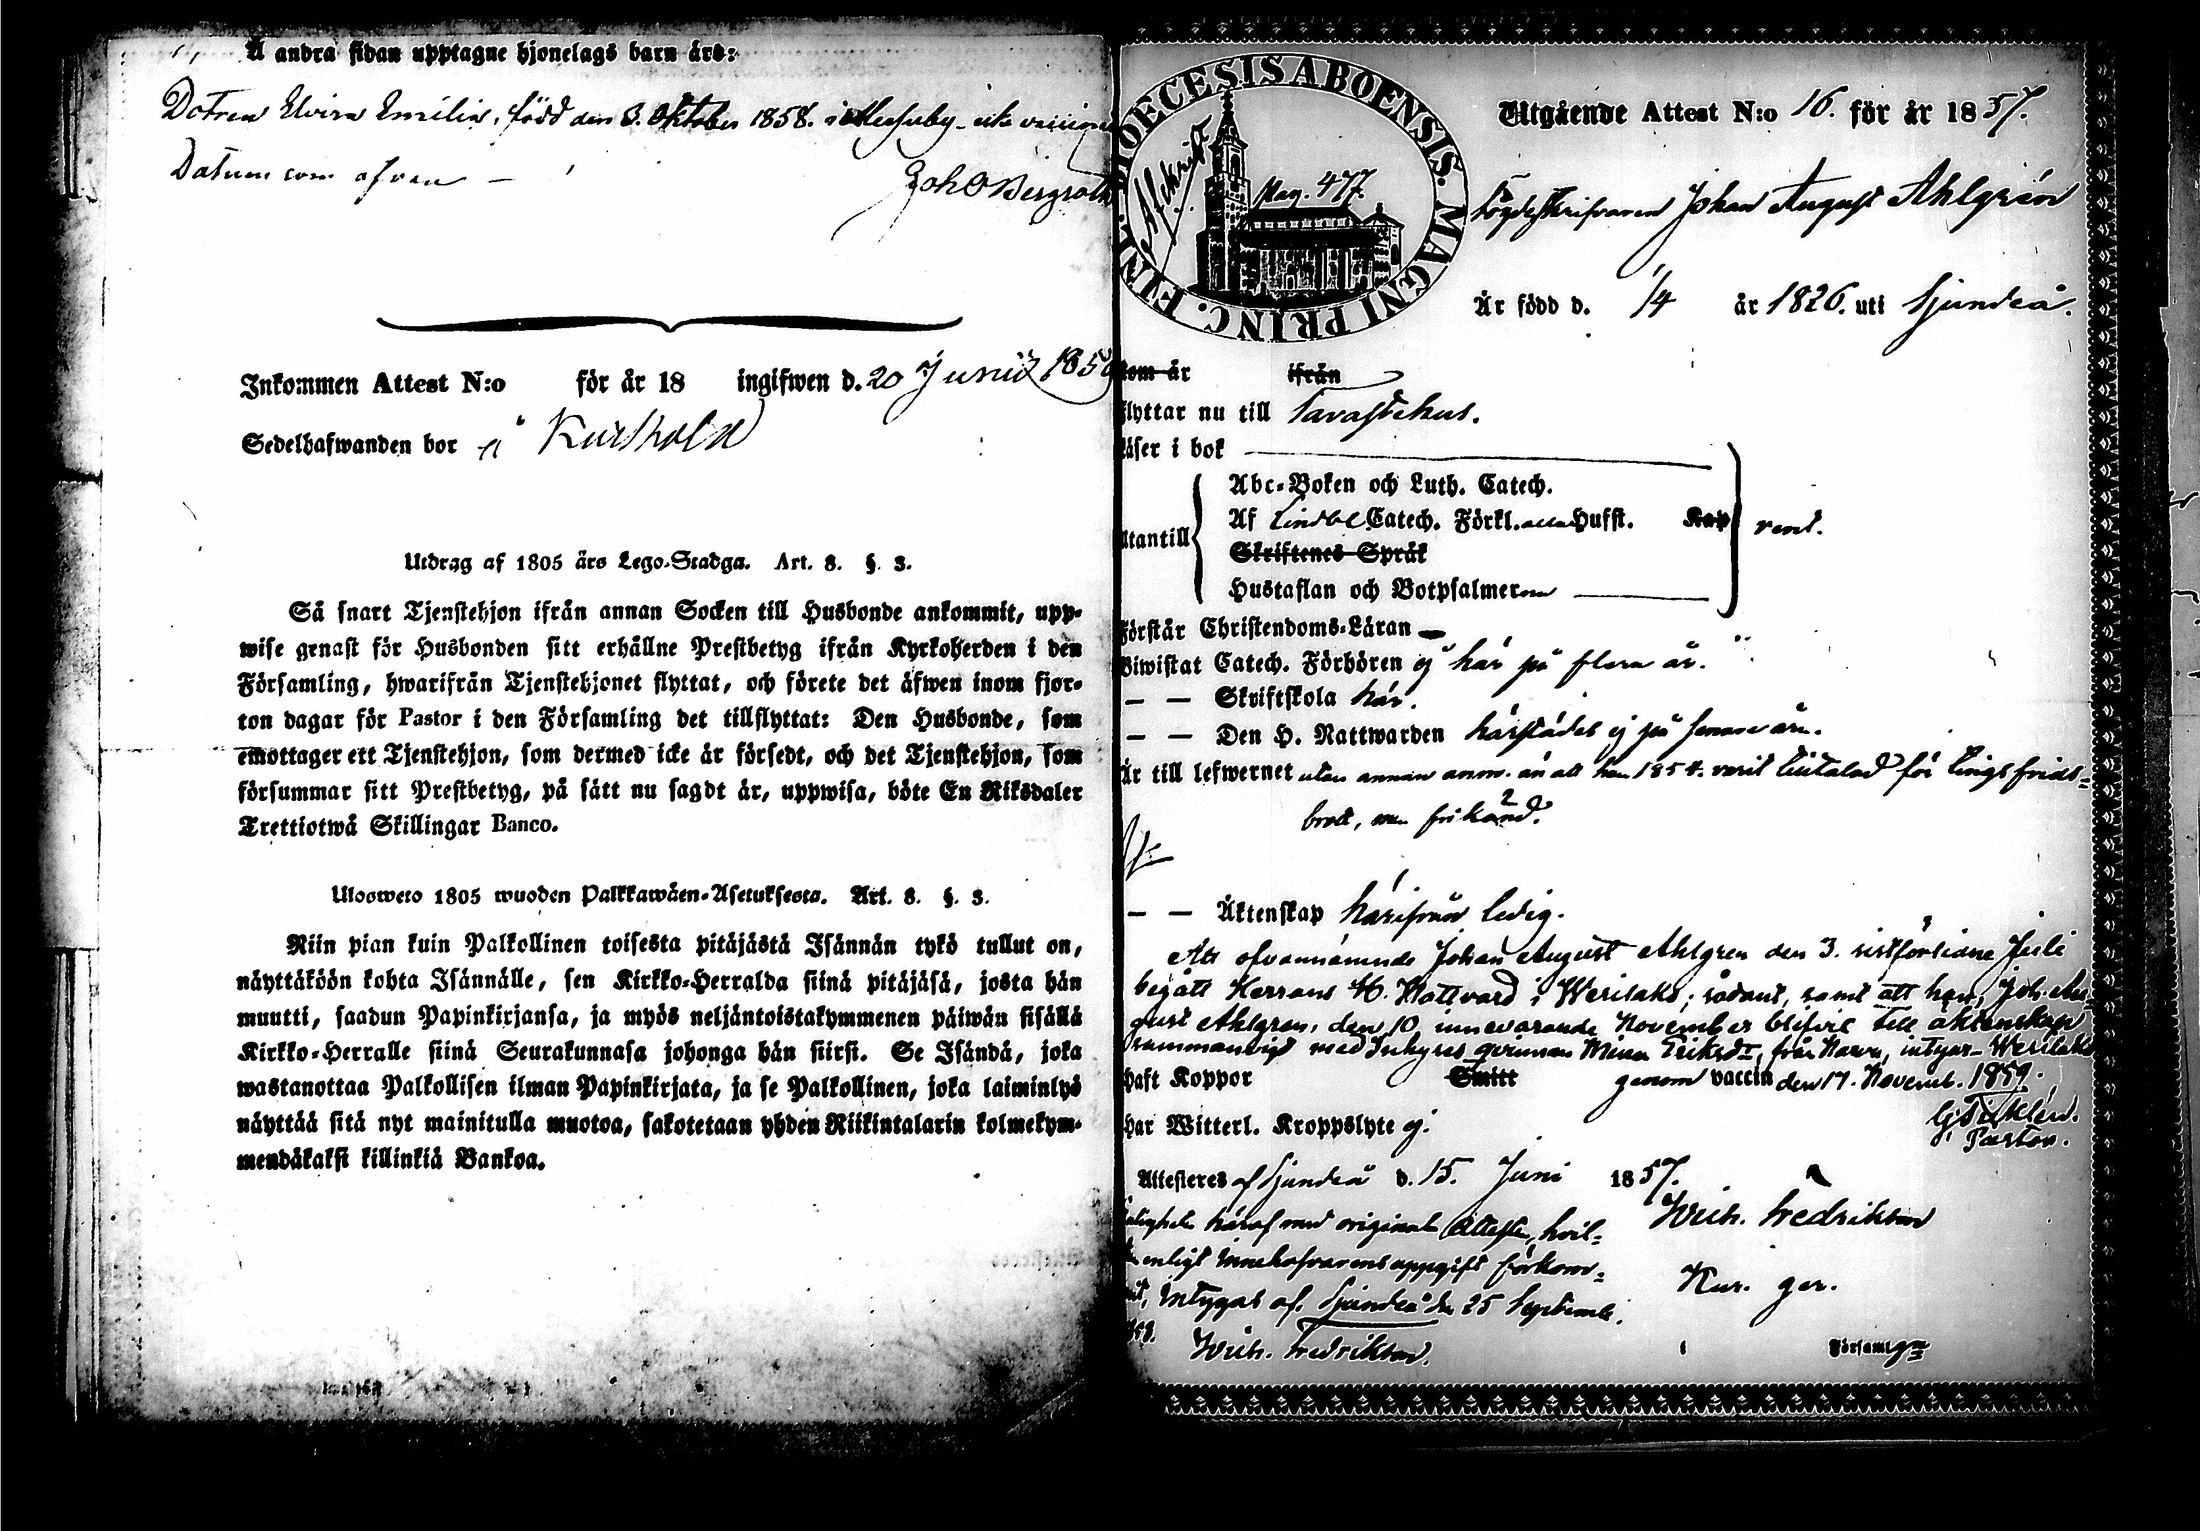 Å andra sidan upptagne hjonelags barn äro:
Dotren Elvira Emilia, född den 3. Oktober 1858. i
Datum som ofvan —
Joh O Bergroth
Inkommen Attest N:o för år 18 ingifwen d. 20 Junii
Sedelhafwanden bor å
Utdrag af 1805 års Lego-Stadga. Art. 8. §. 3.
Så snart Tjenstehjon ifrån annan Socken till Husbonde ankommit, upp-
wise genast för Husbonden sitt erhållne Prestbetyg ifrån Kyrkoherden i den
Församling, hwarifrån Tjenstehjonet flyttat, och förete det äfwen inom fjor-
ton dagar för Pastor i den Församling det tillflyttat: Den Husbonde, som
emottager ett Tjenstehjon, som dermed icke är försedt, och det Tjenstehjon, som
försummar sitt Prestbetyg, på sätt nu sagdt är, uppwisa, böte En Riksdaler
Trettiotwå Skillingar Banco.
Ulosweto 1805 wuoden Palkkawäen-Asetuksesta. Art. 8. §. 3.
Niin pian kuin Palkollinen toisesta pitäjästä Isännän tykö tullut on,
näyttäköön kohta Isännälle, sen Kirkko-Herralda siinä pitäjäsä, josta hän
muutti, saadun Papinkirjansa, ja myös neljäntoistakymmenen päiwän sisällä
Kirkko-Herralle siinä Seurakunnasa johonga hän siirsi. Se Isändä, joka
wastanottaa Palkollisen ilman Papinkirjata, ja se Palkollinen, joka laiminlyö
näyttää sitä nyt mainitulla muotoa, sakotetaan yhden Riikintalarin kolmekym-
mendäkaksi killinkiä Bankoa.
DIOECESIS ABOENSIS. MAGNI PRINC. FINL.
Afskrift
Pag. 477.
Utgående Attest N:o 16. för år 1857.
Johan August Ahlgrén
Är född d. 14 år 1826. uti Sjundeå.
som är ifrån
flyttar nu till Tavastehus.
läser i bok
Abc-Boken och Luth. Catech.
Af Lindbl Catech. Förkl. Husst. Kap
utantill rent.
Skriftenes Språk
Hustaflan och Botpsalmerne
Förstår Christendoms-Läran —
Biwistat Catech. Förhören ej här på flera år.
— — Skriftskola här.
— — Den H. Nattwarden härstädes ej på senare år.
Är till lefwernet utan annan anm. än att han 1854. varit tilltalad för tingsfrids-
brott, men frikänd.
— — Äktenskap härifrån ledig.
Att ofvannämnde Johan August Ahlgren den 3. sistförlidne Juli
begått Herrans H. Nattvard i Werilaks; sådant, samt att han, Joh. Au-
gust Ahlgren, den 10 innevarande November blifvit till äktenskap
sammanvigd med qvinnan Mina från Narva, intygar Werilaks
haft Koppor Smitt genom vaccin den 17. Novemb. 1859.
Pastor.
Har Witterl. Kroppslyte ej.
Attesteres af Sjundeå d. 15. Juni 1857.
Wilh. Fredrikson
häraf med original Attesten, hvil-
enligt Innehafvarens uppgift förkom-
mit, intygas af Sjundeå den 25 Septemb.
Wilh. Fredrikson.